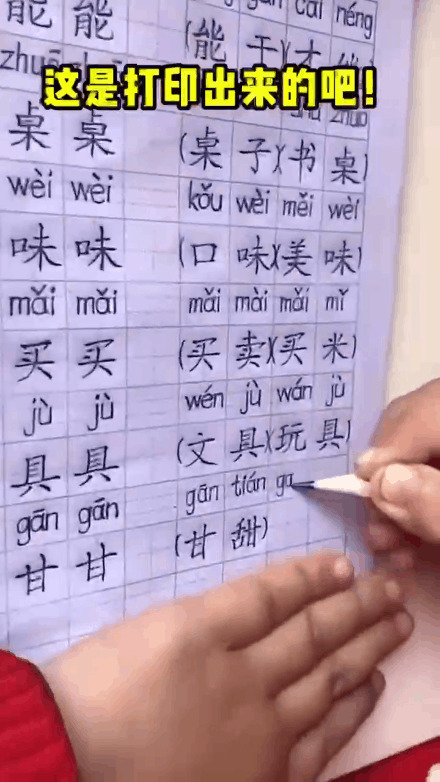 能 能 (能 干)(才 能
这是打印出来的吧!
桌 桌 (桌 子)(书 桌)
wèi wèi kǒu wèi měi wèi
味 味 (口 味)(美 味)
mǎi mǎi mǎi mài mǎi mǐ
买 买 (买 卖)(买 米)
jù jù wén jù wán jù
具 具 (文 具)(玩 具)
gān gān gān tián ga
甘 甘 (甘 甜)